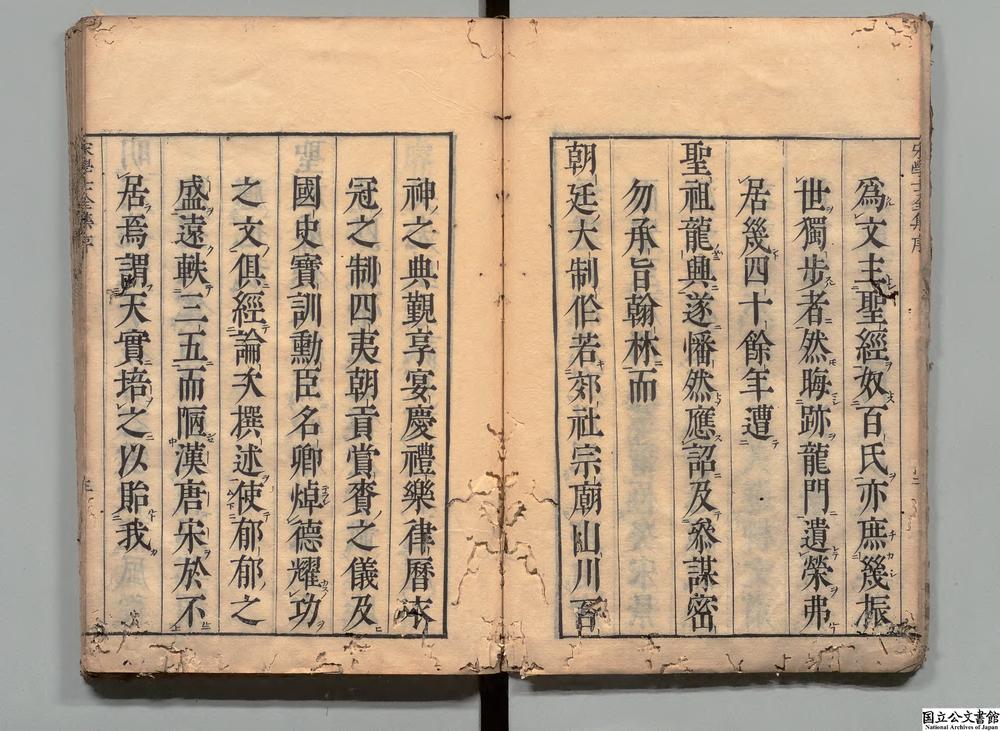 爲文主聖經奴百氏亦庶幾振
世獨步者然晦跡龍門遺榮弗
居幾四十餘年遭
聖祖龍興遂幡然應詔及叅謀密
勿承旨翰林而
朝廷大制作若郊社宗廟山川百
神之典覲享宴慶禮樂律曆衣
冠之制四夷朝貢賞賚之儀及
國史寶訓勳臣名卿焯德耀功
之文俱經論次撰述使郁郁之
盛遠軼三五而陋漢唐宋於不
居焉謂天實培之以貽我
宋學士全集序
国立公文書館
National Archives of Japan